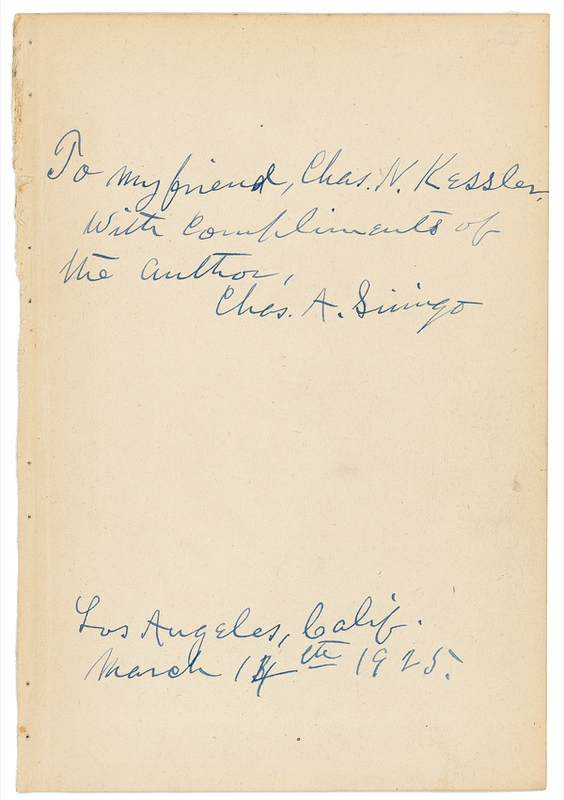 To my friend, Chas. N. Kessler,
With Compliments of
the author,
Chas. A. Siringo
Los Angeles, Calif.
March 14th 1925.